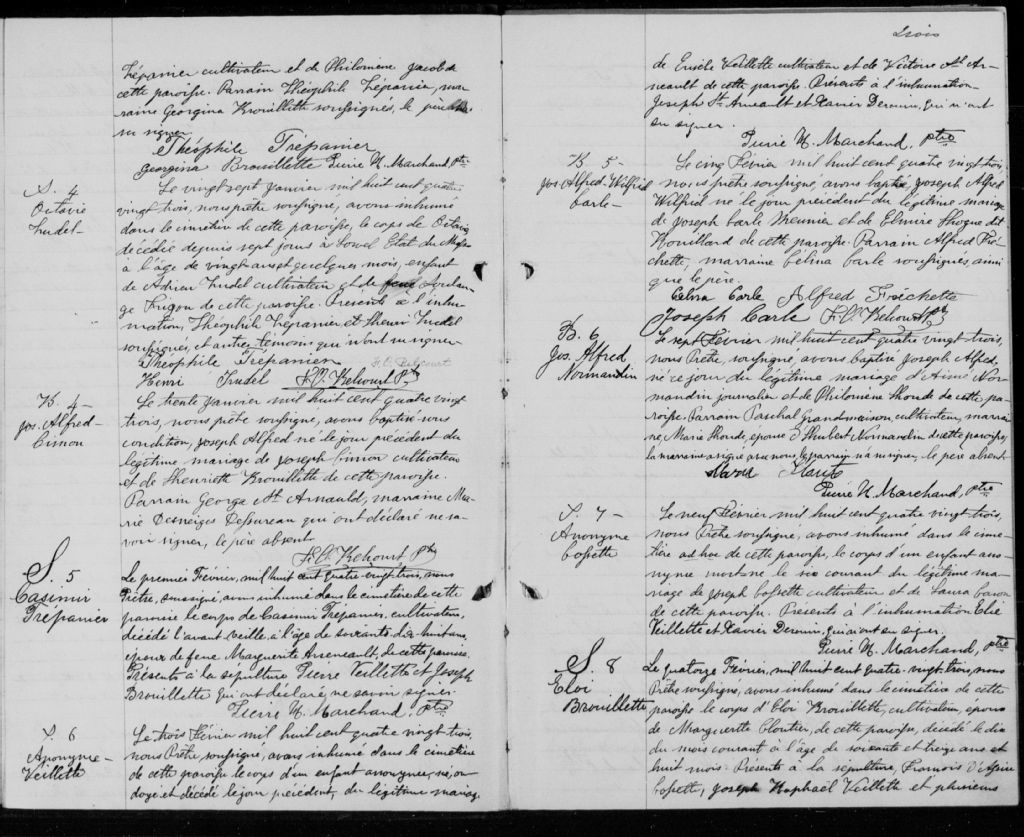 Trépanier cultivateur et de Philomène Jacob de
cette paroisse. Parrain Théophile Trépanier, mar-
raine Georgina Brouillette soussignés, le père
su signer
Théophile Trépanier
Georgina Brouillette Pierre H. Marchand Ptre
S. 4
Octavie
Trudel
Le vingt sept Janvier mil huit cent quatre
vingt trois, nous prêtre soussigné, avons inhumé
dans le cimetière de cette paroisse, le corps de Octavie
décédée depuis sept jours à Lowel Etat du
à l'âge de vingt ans et quelques mois, enfant
de Adrien Trudel cultivateur et de feue Soulan-
ge Frigon de cette paroisse. Présents à l'inhu-
mation, Théophile Trépanier et Henri Trudel
soussignés, et autres témoins qui n'ont su signer
Théophile Trépanier
Henri Trudel
B. 4
Jos. Alfred
Cimon
Le trente Janvier mil huit cent quatre vingt
trois, nous prêtre soussigné, avons baptisé sous
condition, Joseph Alfred né le jour précédent du
légitime mariage de Joseph Cimon cultivateur
et de Henriette Brouillette de cette paroisse.
Parrain George St Arnauld, marraine Ma-
rie Desneiges Dessureau qui ont déclaré ne sa-
voir signer, le père absent
S. 5
Casimir
Trépanier
Le premier Février, mil huit cent quatre-vingt-trois, nous
Prêtre, soussigné, avons inhumé dans le cimetière de cette
paroisse le corps de Casimir Trépanier, cultivateur,
décédé l'avant veille à l'âge de soixante dix huit ans,
époux de feue Marguerite Arseneault, de cette paroisse.
Présents à la sépulture Pierre Veillette et Joseph
Brouillette qui ont déclaré ne savoir signer.
Pierre H. Marchand, Ptre
S. 6
Anonyme
Veillette
Le trois Février mil huit cent quatre vingt trois,
nous Prêtre soussigné, avons inhumé dans le cimetière
de cette paroisse le corps d'un enfant anonyme, né, on-
doyé et décédé le jour précédent, du légitime mariage
trois
de Eusèbe Veillette cultivateur et de Victoire St Ar-
neault de cette paroisse. Présents à l'inhumation
Joseph St Arneault et Xavier Derouin, qui n'ont
su signer.
Pierre H. Marchand, ptre
B. 5
Jos Alfred Wilfrid
Carle
Le cinq Février mil huit cent quatre vingt trois,
nous prêtre soussigné, avons baptisé Joseph Alfred
Wilfrid né le jour précédent du légitime mariage
de Joseph Carle Meunier et de Elmire dit
de cette paroisse. Parrain Alfred Fré-
chette, marraine Célina Carle soussignés, ainsi
que le père.
Célina Carle Alfred Fréchette
Joseph Carle
B. 6
Jos. Alfred
Normandin
Le sept Février, mil huit cent quatre vingt trois,
nous Prêtre, soussigné, avons baptisé Joseph Alfred,
né ce jour du légitime mariage d'Aimé Nor-
mandin journalier et de Philomène de cette pa-
roisse. Parrain Paschal Grandmaison, cultivateur, marrai-
ne, Marie épouse d'Hubert Normandin de cette paroisse,
la marraine a signé avec nous, le parrain n'a su signer, le père absent
Pierre H. Marchand, ptre
S. 7
Anonyme
Cossette
Le neuf Février, mil huit cent quatre vingt trois,
nous Prêtre soussigné, avons inhumé dans le cime-
tière ad hoc de cette paroisse, le corps d'un enfant ano-
nyme mort-né le six courant du légitime ma-
riage de Joseph Cossette cultivateur et de Laura Caron
de cette paroisse. Présents à l'inhumation Elie
Veillette et Xavier Derouin, qui n'ont su signer.
Pierre H. Marchand, ptre
S. 8
Eloi
Brouillette
Le quatorze Février, mil huit cent quatre-vingt-trois, nous
Prêtre soussigné, avons inhumé dans le cimetière de cette
paroisse le corps d'Eloi Brouillette, cultivateur, époux
de Marguerite Cloutier, de cette paroisse, décédé le dix
du mois courant à l'âge de soixante et treize ans et
huit mois. Présents à la sépulture, François
Cossette, Joseph Raphaël Veillette et plusieurs